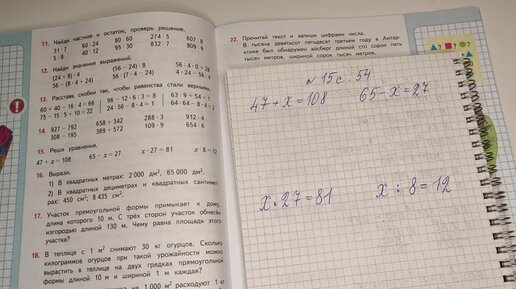 11. Найди частное и остаток, проверь решение.
31 : 7 60 : 24 80 : 60 274 : 5 607 : 8
5 : 8 40 : 12 95 : 30 832 : 7 809 : 9
12. Найди значения выражений.
(24 + 8) : 4 (56 – 24) : 8
56 – (8 · 4 + 24) 56 : (7 · 4 – 24)
13. Расставь скобки так, чтобы равенства стали верными.
60 + 40 – 16 : 4 = 66 96 – 12 · 6 : 3 = 8
75 – 15 : 5 + 10 = 22
14. 927 – 792 658 + 342 288 · 3 912 : 4
308 – 195 389 + 572 109 · 9 654 : 6
15. Реши уравнения.
47 + x = 108 65 – x = 27 x · 27 = 81 x : 8 = 12
16. Вырази.
1) В квадратных метрах: 2 000 дм², 65 000 дм².
2) В квадратных дециметрах и квадратных сантимет-
рах: 450 см²; 8 435 см².
17. Участок прямоугольной формы примыкает к дому,
длина которого 10 м. С трёх сторон участок обнесён
изгородью длиной 130 м. Чему равна площадь этого
участка?
18. В теплице с 1 м² снимают 30 кг огурцов. Сколько
килограммов огурцов при такой урожайности можно
вырастить в теплице на двух грядках прямоугольной
формы длиной 10 м и шириной 1 м каждая?
на 1 000 м² расходуют 1 кг
22. Прочитай текст и запиши цифрами числа.
В тысяча девятьсот пятьдесят третьем году в Антар-
ктике был обнаружен айсберг длиной сто сорок пять
тысяч метров, шириной сорок тысяч метров.
№ 15 с. 54
47 + x = 108 65 – x = 27
x · 27 = 81 x : 8 = 12